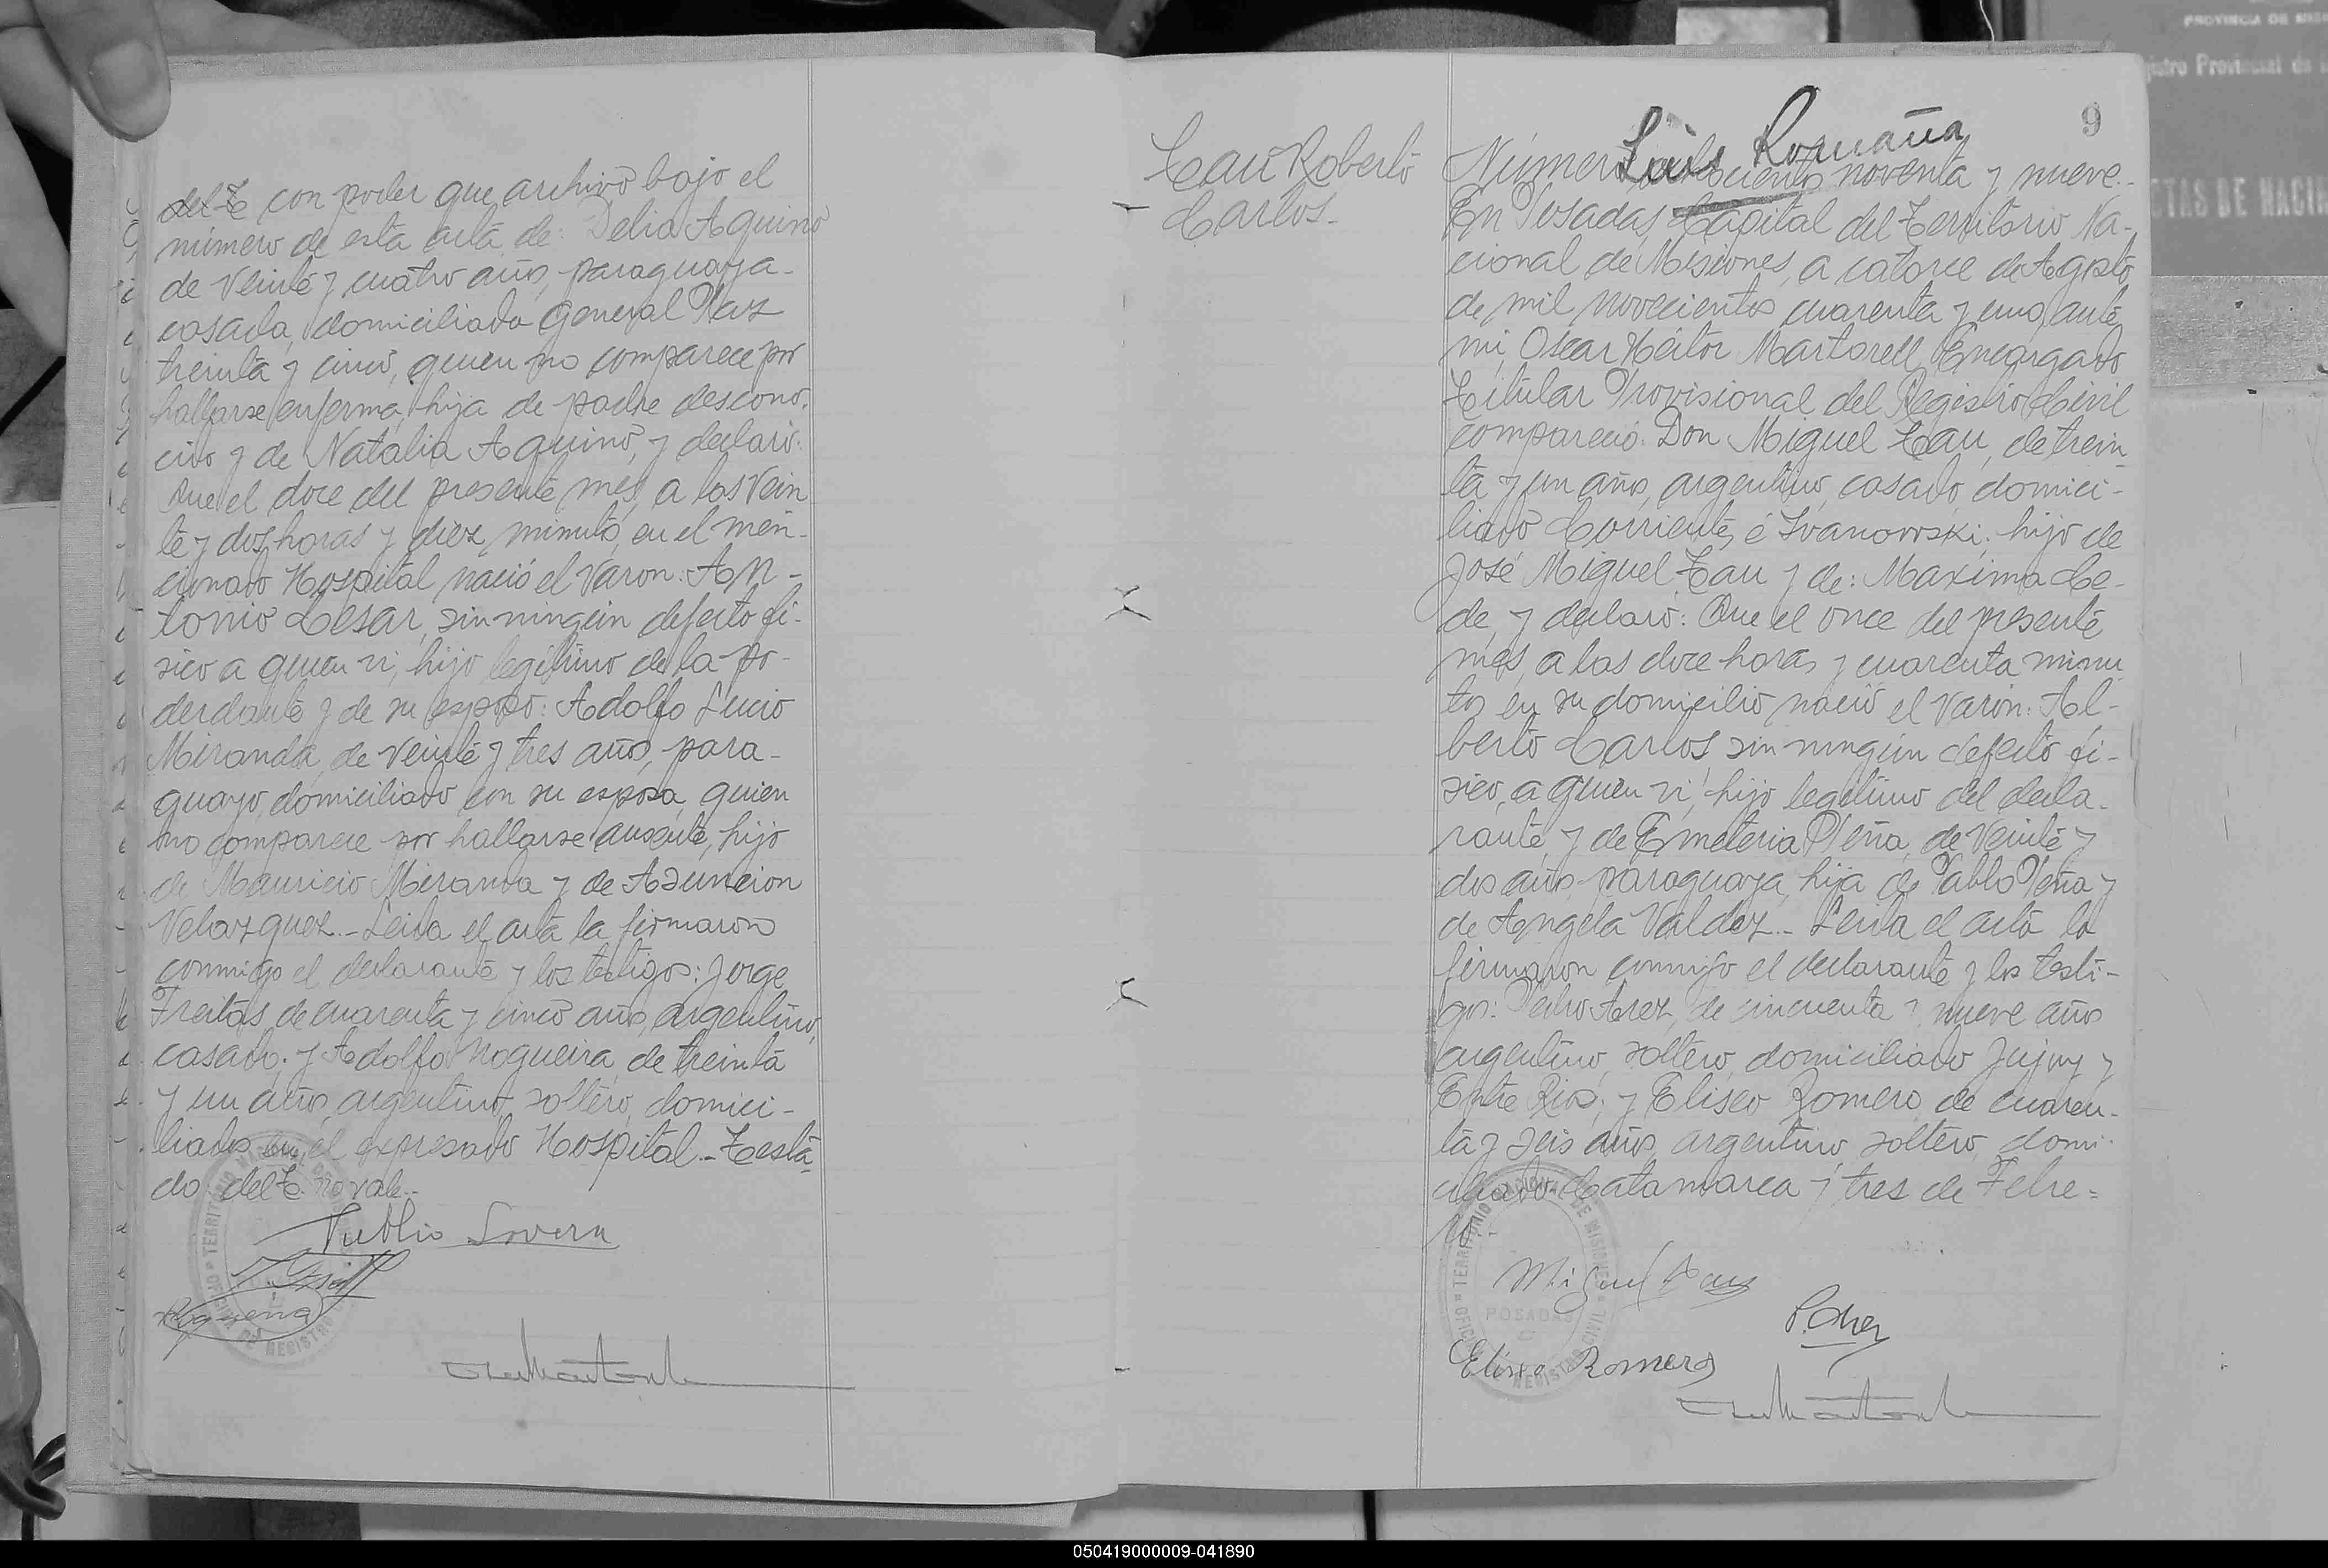 del T. con poder que archivó bajo el
número de esta acta de: Delia Aquino
de veinte y cuatro años, paraguaya
casada, domiciliada General Paz
treinta y cinco, quien no comparece por
hallarse enferma, hija de padre descono-
cido y de Natalia Aquino, y declaró:
Que el doce del presente mes, a las vein
te y dos horas y diez minutos, en el men-
cionado Hospital nació el varon: An-
tonio Cesar, sin ningún defecto fi-
sico a quien vi, hijo legítimo de la po-
derdante y de su esposo: Adolfo Lucio
Miranda, de veinte y tres años, para-
guayo, domiciliado con su esposa, quien
no comparece por hallarse ausente, hijo
de Mauricio Miranda y de Asuncion
Velazquez.- Leida el acta la firmaron
conmigo el declarante y los testigos: Jorge
Freitas de cuarenta y cinco años, argentino,
casado; y Adolfo Nogueira, de treinta
y un años, argentino, soltero, domici-
liados en el expresado Hospital.- Testa-
do: del T. no vale.-
Publio Lovera
Nogueira
Tau Roberto
Carlos.-
Luis Romaña
9
Número noventa y nueve.-
En Posadas, Capital del Territorio Na-
cional de Misiones, a catorce de Agosto
de mil novecientos cuarenta y uno, ante
mi, Oscar Héctor Martorell, Encargado
Titular Provisional del Registro Civil
compareció: Don Miguel Tau, de trein
ta y un años, argentino, casado, domici-
liado Corrientes é Ivanowski; hijo de
José Miguel Tau y de: Maxima Ce-
de, y declaró: Que el once del presente
mes, a las doce horas y cuarenta minu
tos en su domicilio nació el varon: Al-
berto Carlos, sin ningún defecto fi-
sico, a quien vi, hijo legítimo del decla-
rante, y de Emeteria Peña, de veinte y
dos años, paraguaya, hija de Pablo Peña y
de Angela Valdez.- Leida el acta la
firmaron conmigo el declarante y los testi-
gos: Pedro Arez, de cincuenta y nueve años
argentino, soltero, domiciliado Jujuy y
Entre Rios; y Eliseo Romero, de cuaren-
ta y seis años, argentino, soltero, domi-
ciliado Catamarca y tres de Febre=
ro.-
Miguel Tau
P. Arez
Eliseo Romero
TERRITORIO NACIONAL DE MISIONES
POSADAS
OFICINA DE REGISTRO CIVIL
PROVINCIA DE MISI
gistro Provincial de l
CTAS DE NACIM
050419000009-041890